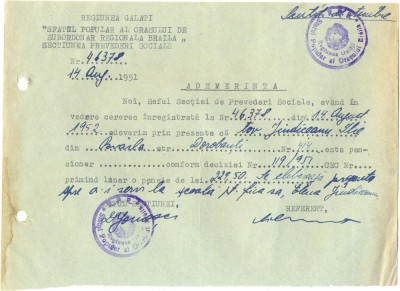 REGIUNEA GALATI
"SFATUL POPULAR AL ORASULUI DE
SUBORDONAR REGIONALA BRAILA "
SECTIUNEA PREVEDERI SOCIALE
Nr. 46378.
14 Aug. 1951
ADEVERINTA
Noi, Seful Sectiei de Prevederi Sociale, având în
vedere cererea înregistrată la Nr. 46378 din 14 August
1952 adeverim prin prezenta că tov. Jindiceanu Ilie
din Braila str. Dorobanti Nr. 44 este pen-
sionar conform deciziei Nr. 119/951 CEC Nr.
primind lunar o pensie de lei. 2250. Se elibereaza prezenta
spre a-i servi la școala pt. fiica sa, Elena Jindiceanu
SEFUL SECTIUNEI,
REFERENT,